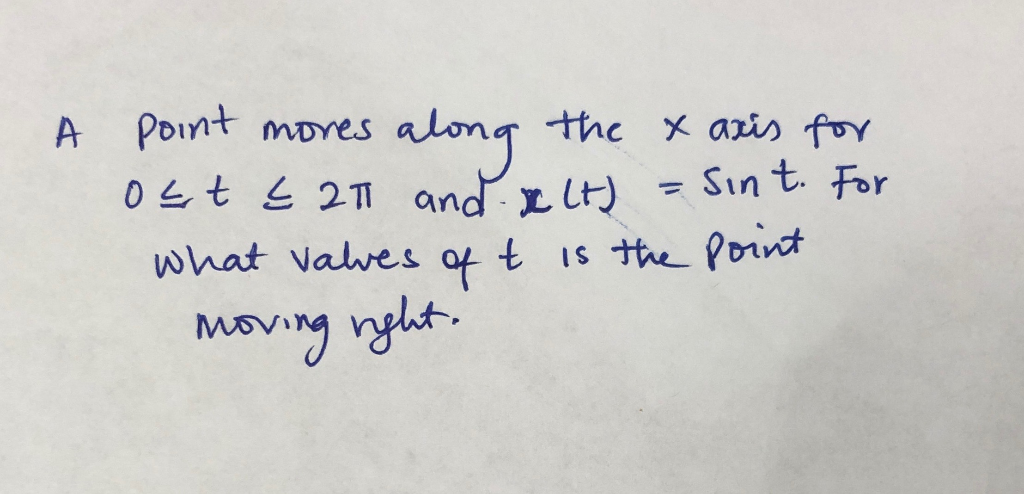 A point moves along the x axis for
0 ≤ t ≤ 2π and x(t) = Sin t. For
what values of t is the point
moving right.